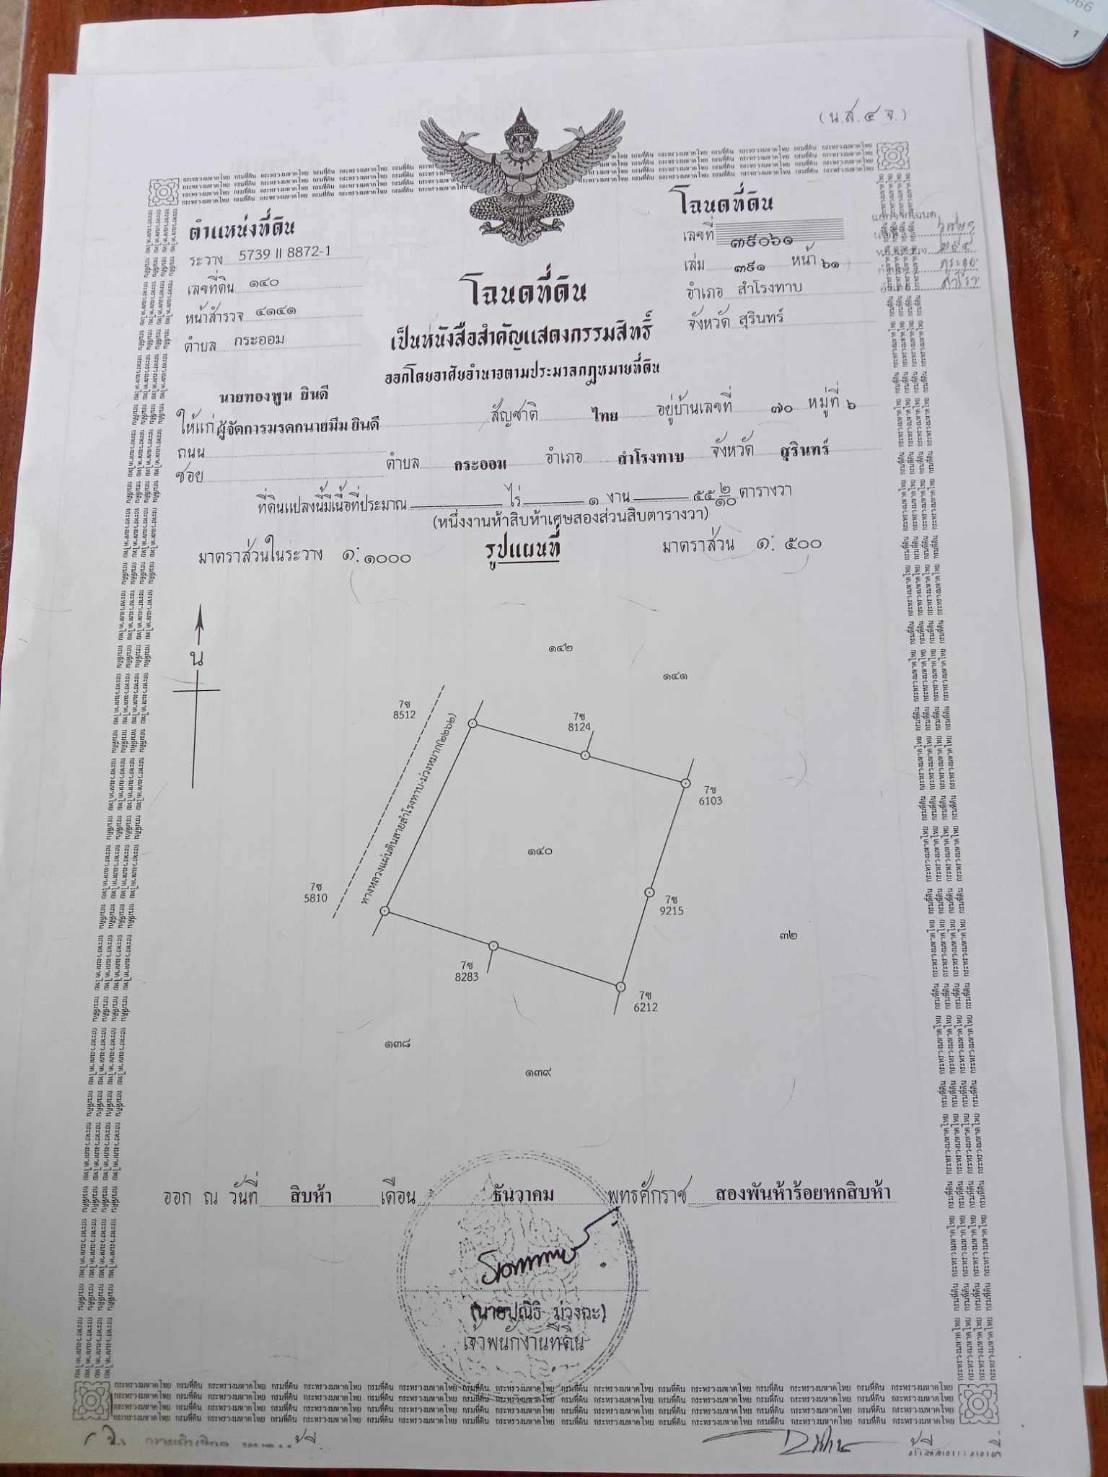 (น.ส.๔ จ.)
ตำแหน่งที่ดิน
ระวาง 5739 II 8872-1
เลขที่ดิน ๑๔๐
หน้าสำรวจ ๔๑๔๑
ตำบล กระออม
โฉนดที่ดิน
เลขที่ ๓๙๐๖๑
เล่ม ๓๙๑ หน้า ๖๑
อำเภอ สำโรงทาบ
จังหวัด สุรินทร์
โฉนดที่ดิน
เป็นหนังสือสำคัญแสดงกรรมสิทธิ์
ออกโดยอาศัยอำนาจตามประมวลกฎหมายที่ดิน
นายทองพูน ยินดี
ให้แก่ ผู้จัดการมรดกนายมีม ยินดี สัญชาติ ไทย อยู่บ้านเลขที่ ๗๐ หมู่ที่ ๖
ถนน
ซอย ตำบล กระออม อำเภอ สำโรงทาบ จังหวัด สุรินทร์
ที่ดินแปลงนี้มีเนื้อที่ประมาณ ไร่ ๑ งาน ๕๕ ๒/๑๐ ตารางวา
(หนึ่งงานห้าสิบห้าเศษสองส่วนสิบตารางวา)
มาตราส่วนในระวาง ๑:๑๐๐๐ รูปแผนที่ มาตราส่วน ๑: ๕๐๐
น
๑๔๒
๑๔๑
7ช
8512
7ช
8124
ทางหลวงแผ่นดินสายสำโรงทาบ-ม่วงหมาก(๒๒๖๒)
7ช
6103
๑๔๐
7ช
5810
7ช
9215
๓๒
7ช
8283
7ช
6212
๑๓๘
๑๓๙
ออก ณ วันที่ สิบห้า เดือน ธันวาคม พุทธศักราช สองพันห้าร้อยหกสิบห้า
เจ้าพนักงานที่ดิน